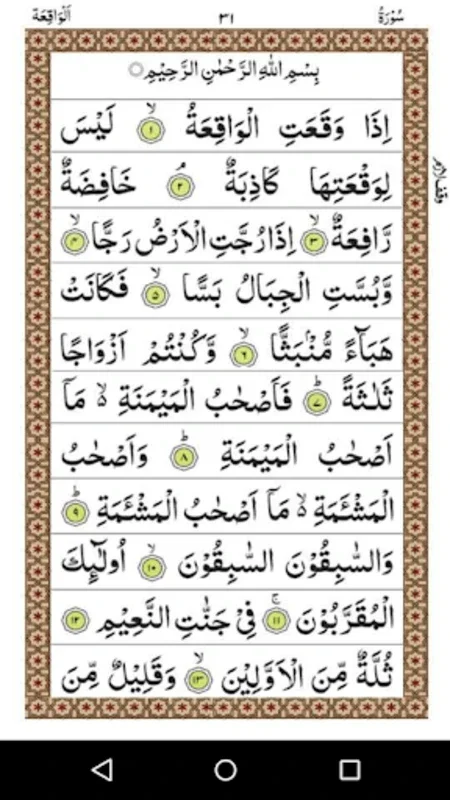 سُوْرَةُ ٣١ اَلْوَاقِعَة
بِسْمِ اللّٰهِ الرَّحْمٰنِ الرَّحِيْمِ
اِذَا وَقَعَتِ الْوَاقِعَةُ ۙ‏ ﴿١﴾ لَيْسَ
لِوَقْعَتِهَا كَاذِبَةٌ ۘ‏ ﴿٢﴾ خَافِضَةٌ
رَّافِعَةٌ ۙ‏ ﴿٣﴾ اِذَا رُجَّتِ الْاَرْضُ رَجًّا ۙ‏ ﴿٤﴾
وَّبُسَّتِ الْجِبَالُ بَسًّا ۙ‏ ﴿٥﴾ فَكَانَتْ
هَبَآءً مُّنْۢبَثًّا ۙ‏ ﴿٦﴾ وَّكُنْتُمْ اَزْوَاجًا
ثَلٰثَةً ؕ‏ ﴿٧﴾ فَاَصْحٰبُ الْمَيْمَنَةِ ۙ مَاۤ
اَصْحٰبُ الْمَيْمَنَةِ ؕ‏ ﴿٨﴾ وَاَصْحٰبُ
الْمَشْـَٔمَةِ ۙ مَاۤ اَصْحٰبُ الْمَشْـَٔمَةِ ؕ‏ ﴿٩﴾
وَالسّٰبِقُوْنَ السّٰبِقُوْنَ ۙ‏ ﴿١٠﴾ اُولٰٓئِكَ
الْمُقَرَّبُوْنَ ۚ‏ ﴿١١﴾ فِىْ جَنّٰتِ النَّعِيْمِ ﴿١٢﴾
ثُلَّةٌ مِّنَ الْاَوَّلِيْنَ ۙ‏ ﴿١٣﴾ وَقَلِيْلٌ مِّنَ
وقف لازم